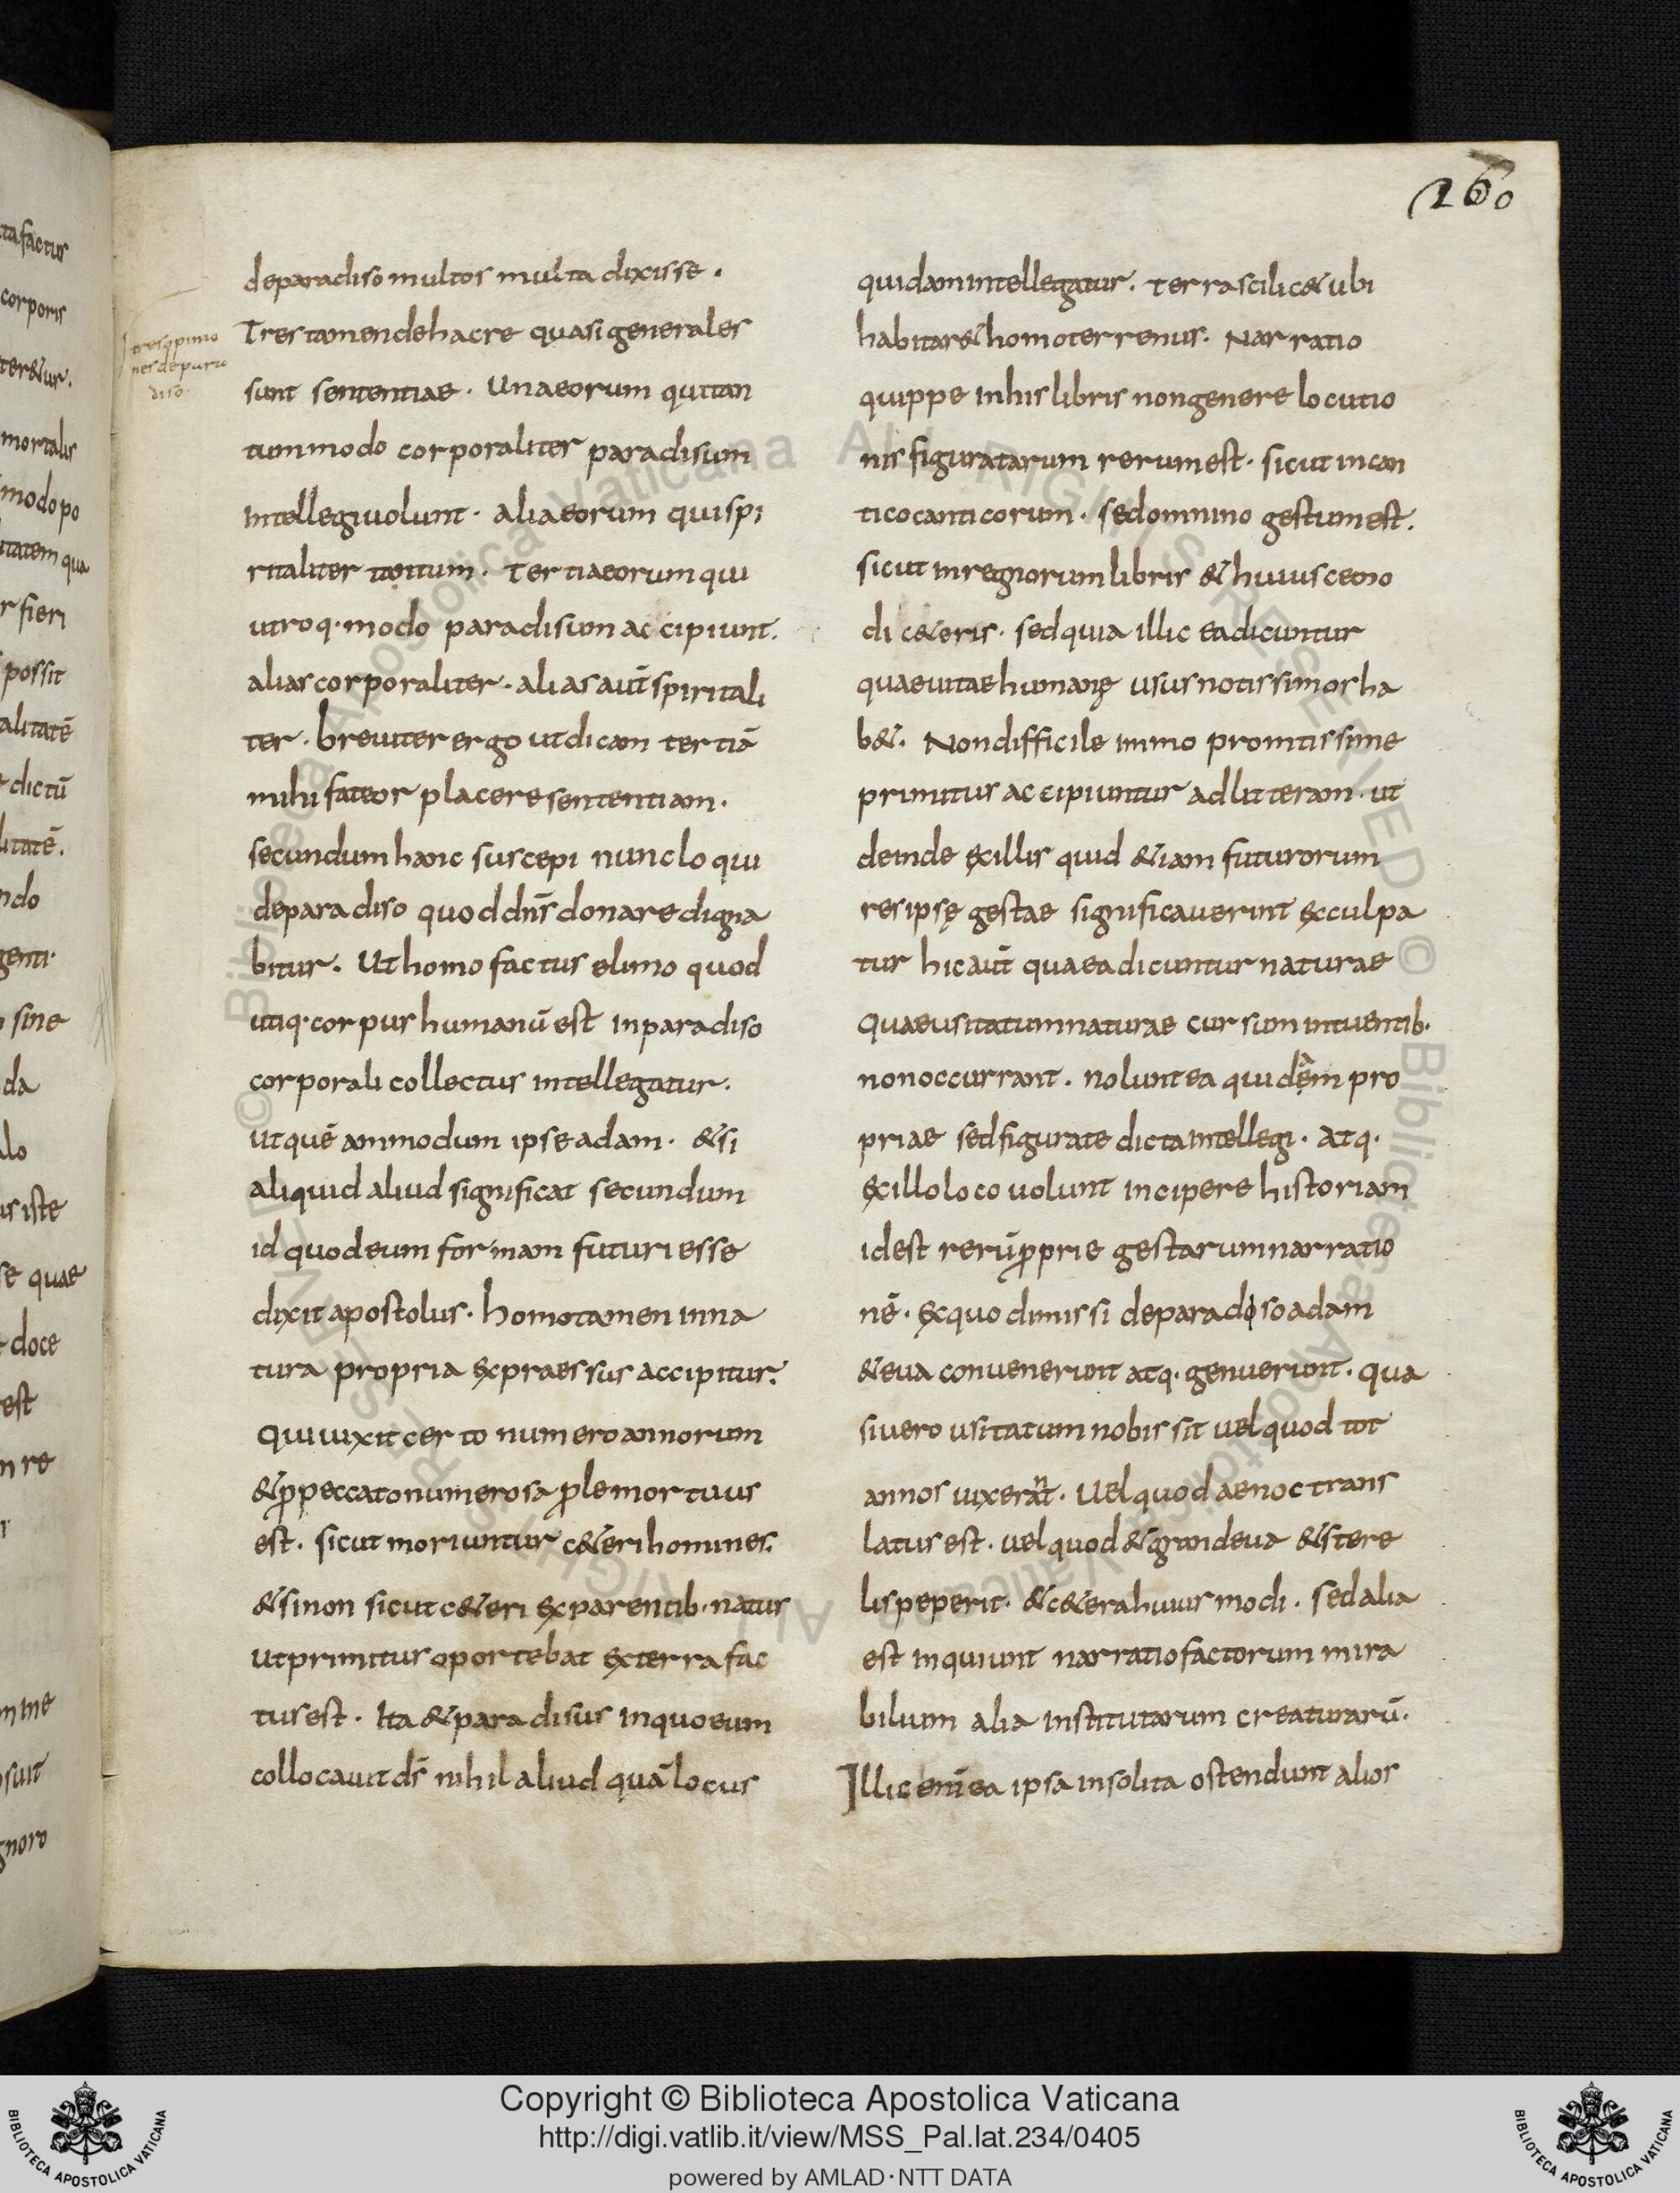 160
tres opinio
nes de para
diso.
de paradiso multos multa dixisse.
Tres tamen de hac re quasi generales
sunt sententiae. Una eorum qui tan
tummodo corporaliter paradisum
intellegi volunt. alia eorum qui spi
ritaliter tantum. Tertia eorum qui
utroq· modo paradisum accipiunt.
alias corporaliter. alias aut̄ spiritali
ter. breviter ergo ut dicam tertiā
mihi fateor placere sententiam.
secundum hanc suscepi nunc loqui
de paradiso quod dn̄s donare digna
bitur. Ut homo factus e limo quod
utiq· corpus humanū est in paradiso
corporali collectus intellegatur.
ut quē ammodum ipse adam. & si
aliquid aliud significat secundum
id quod eum formam futuri esse
dixit apostolus. homo tamen in na
tura propria expraessus accipitur.
Qui vixit certo numero annorum
& ꝓpeccato numerosa ꝓle mortuus
est. sicut moriuntur c&eri homines.
& si non sicut c&eri ex parentib· natus
ut primitus oportebat ex terra fac
tus est. Ita & paradisus in quo eum
collocavit dš nihil aliud quā locus
quidam intellegatur. terra scilic& ubi
habitar& homo terrenus. Narratio
quippe in his libris non genere locutio
nis figuratarum rerum est. sicut in can
tico canticorum. sed omnino gestum est.
sicut in regnorum libris & huiuscemo
di c&eris. sed quia illic ea dicuntur
quae vitae humanę usus notissimos ha
b&. Non difficile immo promtissime
primitus accipiuntur ad litteram. ut
deinde ex illis quid &iam futurorum
res ipsę gestae significaverint exculpa
tur hic aut̄ quae a dicuntur naturae
Quae usitatum naturae cursum intuentib·
non occurrant. nolunt ea quidam pro
priae sed figurate dicta intellegi. Atq·
ex illo loco volunt incipere historiam
id est rerū ꝓprie gestarum narratio
nē. Ex quo dimissi de paradiso adam
& eva convenerunt atq· genuerunt. qua
si vero usitatum nobis sit vel quod tot
annos vixerant. Vel quod aenoc trans
latus est. vel quod & grandeva & stere
lis peperit. & c&era huiusmodi. sed alia
est inquiunt narratio factorum mira
bilium alia institutarum creaturarū.
Illic enī ea ipsa insolita ostendunt alios
ta factus
corporis
ter&ur.
mortalis
modo po
tatem qua
r fieri
possit
alitatē
dictū
litatē.
ndo
genti.
sine
da
lo
us iste
se quae
doce
est
n re
mine
suit
gnoro
© Biblioteca Apostolica Vaticana ALL RIGHTS RESERVED © Biblioteca Apostolica Vaticana ALL RIGHTS RESERVED
Copyright © Biblioteca Apostolica Vaticana
http://digi.vatlib.it/view/MSS_Pal.lat.234/0405
powered by AMLAD·NTT DATA
BIBLIOTECA APOSTOLICA VATICANA
BIBLIOTECA APOSTOLICA VATICANA